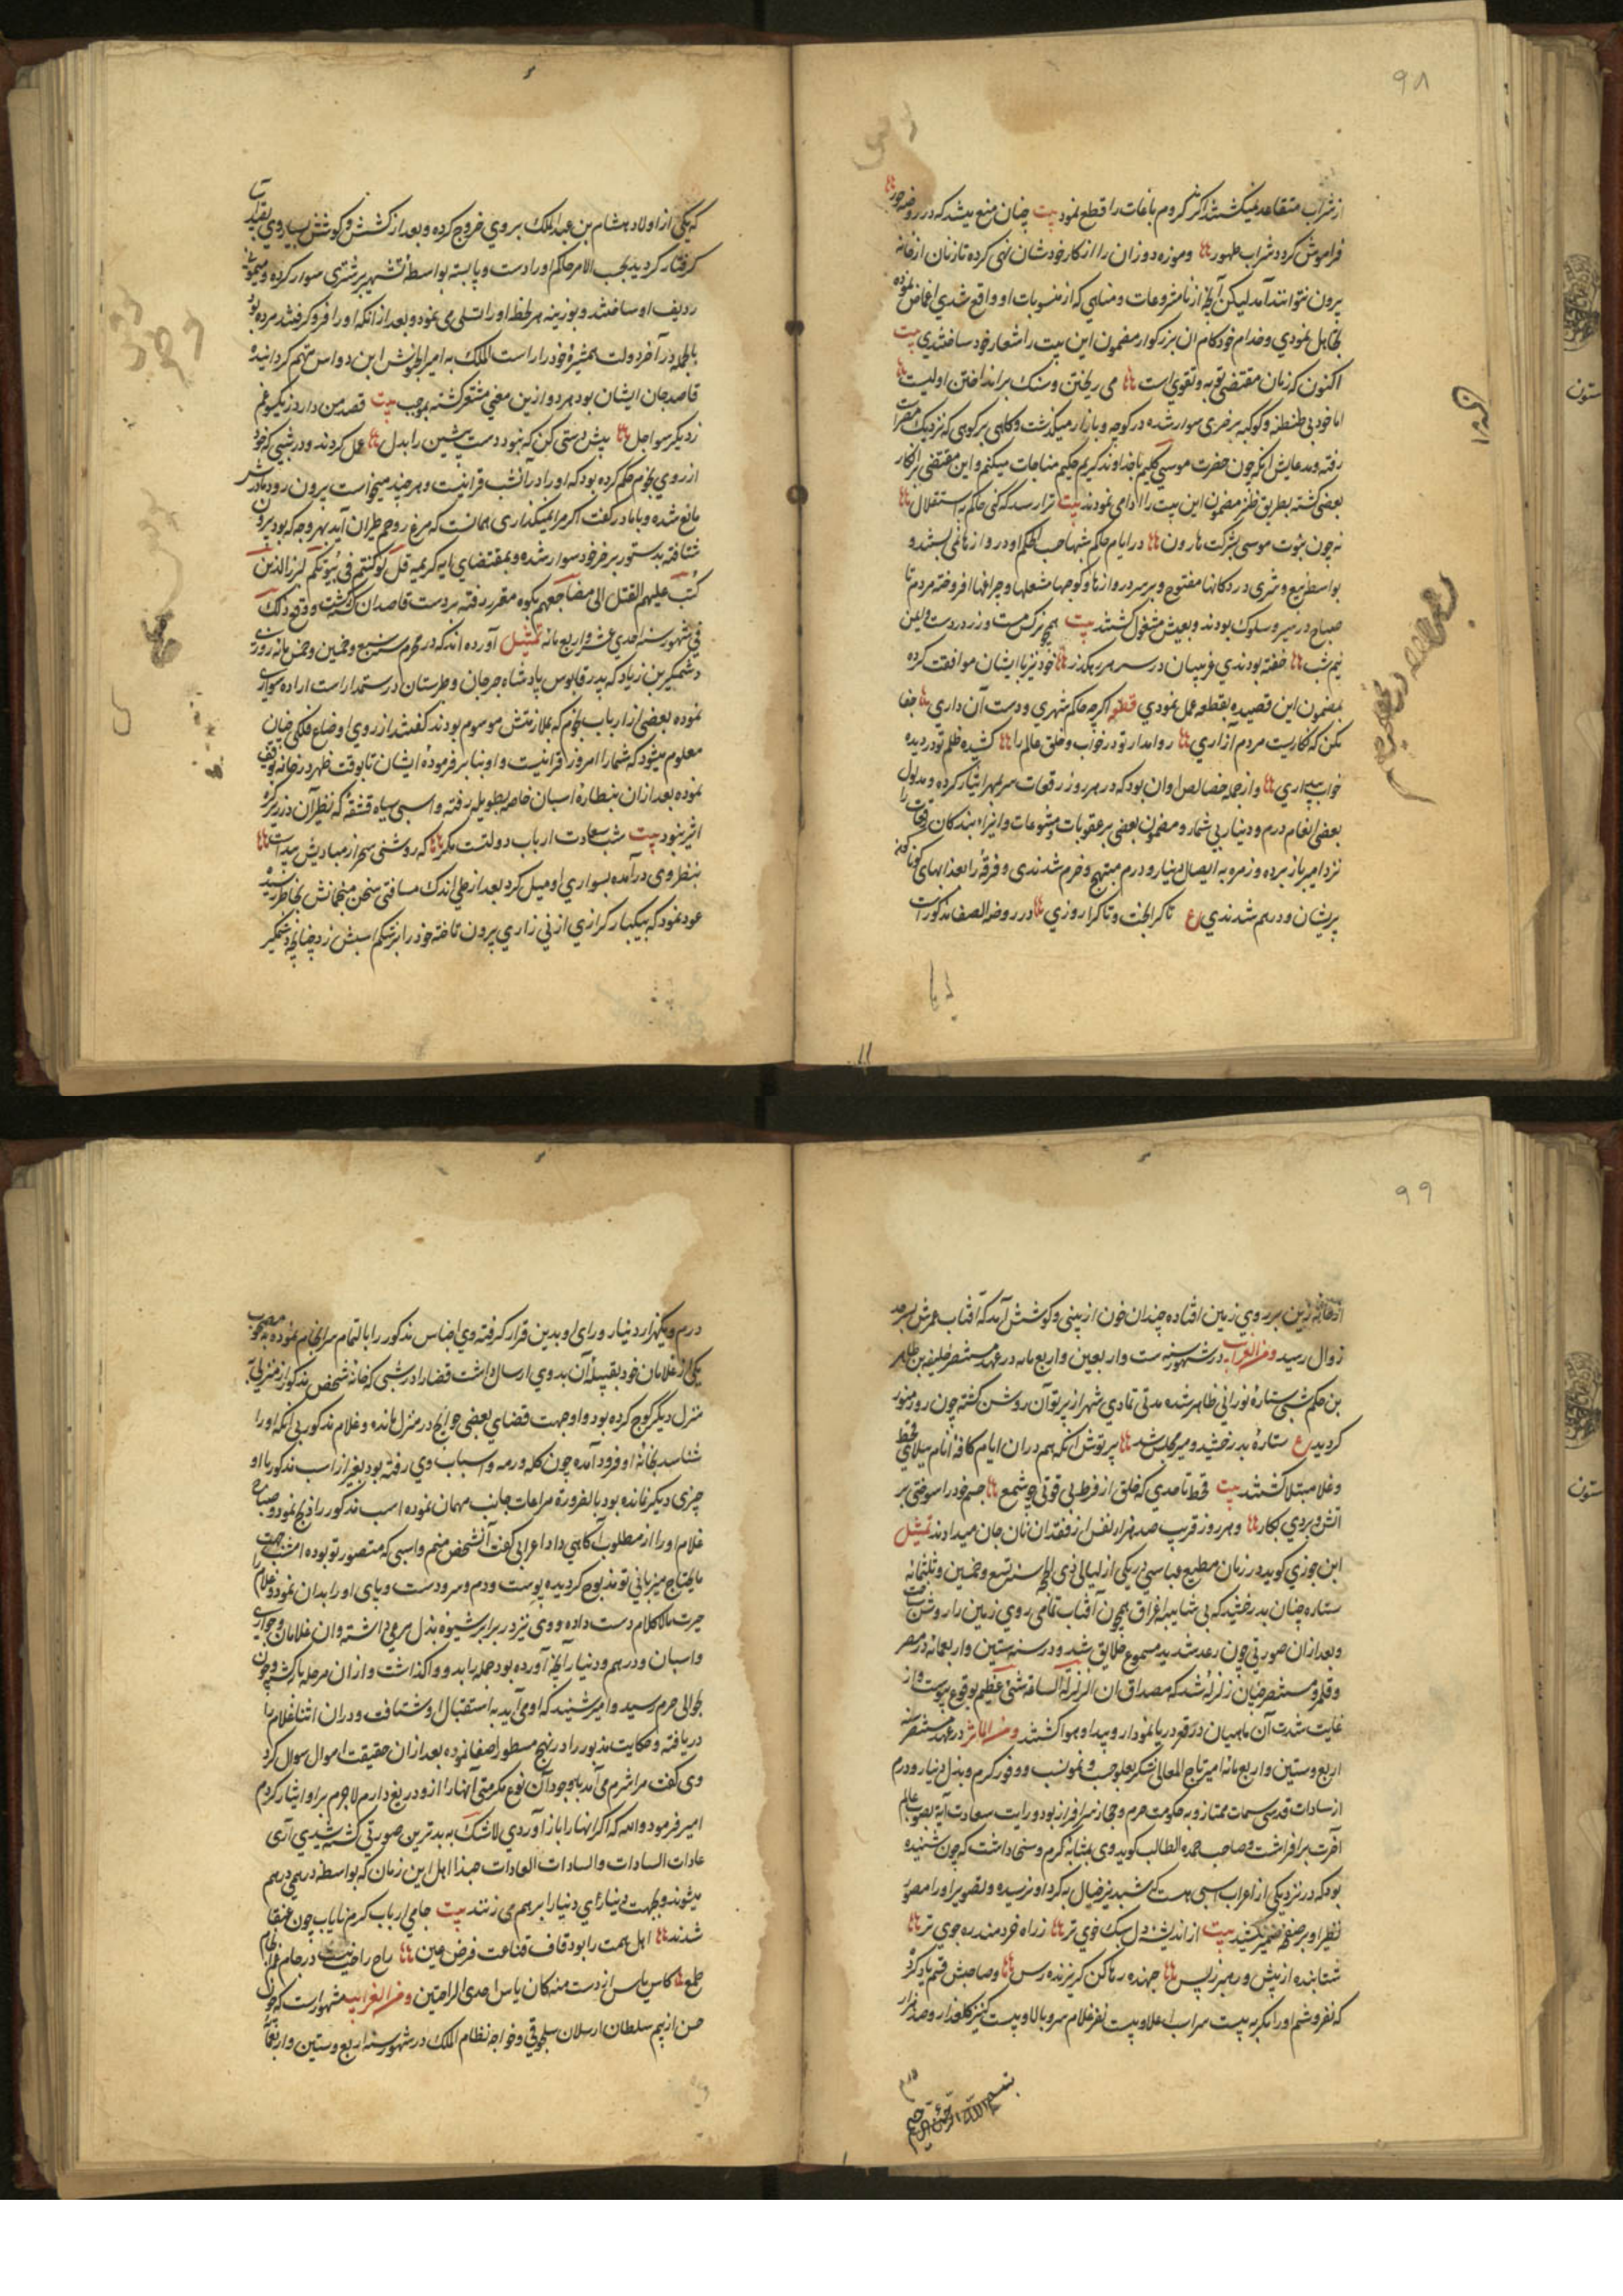 ۹۸
از شراب متقاعد نمیکشتند اکثر کروم باغات را قطع نمود بیت چنان منع میشد که در روضه حور
فراموش کرد شراب طهور و موزه دوزان را از کار خودشان نهی کرده تا زنان از خانه
بیرون نتوانند آمد لیکن آنچه از نامشروعات و مناهی که از منسوبات او واقع شدی اغماض نموده
تجاهل نمودی و خدام خودکام ان بزرکوار مضمون این بیت را شعار خود ساختندی بیت
اکنون که زمان مقتضی توبه و تقوی است می ریختن و سنک برانداختن اولیست
اما خود بی طنطنه و کوکبه بر خری سوار شده در کوچه و بازار میکذشت و کاهی بر کوهی که نزدیک مصر است
رفته و مدعایش آنکه چون حضرت موسی کلیم با خداوند کریم حکیم مناجات میکنم و این مقتضی انکار
بعضی کشته بطریق طنز مضمون این بیت را ادا می نمودند بیت ترا رسد که کنی حکم به استقلال
نه چون نبوت موسی بشرکت هارون در ایام حکم شبها حسب الحکم او دروازها نمی بستند و
بواسطه بیع و شری در دکانها مفتوح و بر سر دروازها و کوچها مشعلها و چراغها افروخته مردم تا
صباح در سیر و سلوک بودند و بعیش مشغول کشتند بیت همچو نرکس مست و زر در دست و ایمن
نیم شب خفته بودندی غریبان در سر هر رهکذر خود نیز با ایشان موافقت کرده
بمضمون این قصیده بقطعه عمل نمودی قطعه اکرچه حاکم شهری و دست آن داری جفا
مکن که نکاریست مردم آزاری روا مدار تو در خواب و خلق عالم را کشیده ظلم تو در دیده
خواب بیداری و از جمله خصایص او ان بود که در هر روز رقعات سر بمهر ایثار کرده و مدلول
بعضی انعام درم و دینار بی شمار و مضمون بعضی بر عقوبات و متنوعات و ایذاء بندکان رقعات را
نزد امیر باز برده و زمره به ایصال دینار و درم مبتهج و خرم شدندی و فرقه را بعذابهای کوناکون
پریشان و درهم شدندی ع تا کرا بخت و تا کرا روزی در روضة الصفا مذکور است
که یکی از اولاد هشام بن عبدالملک بر وی خروج کرده و بعد از کشش و کوشش بسیار وی بقید
کرفتار کردید بحسب الامر حاکم او را دست و پا بسته بواسطه تشهیر بر شتری سوار کرده و میمونی
ردیف او ساختند و بوزینه هر لحظه او را تسلی می نمود و بعد از انکه او را فرو کرفتند مرده بود
بالجمله در آخر دولت همشیره خود را راست الملک به امیر الجیوش ابن دواس متهم کردانیده
قاصد جان ایشان بود هر دو ازین معنی متشعر کشته بموجب بیت قصد من دارد ز یکسو غم
ز دیکر سو اجل پیش دستی کن که نبود دست پیشین را بدل عمل کردند و در شبی که خود
از روی نجوم حکم کرده بود که او را در آنشب قرانیست و هر چند میخواست بیرون رود مادرش
مانع شده و با مادر کفت اکر مرا نمیکذاری همانست که مرغ روحم طیران آید بهر وجه که بود بیرون
شتافته بدستور بر خر خود سوار شده و بمقتضای ایه کریمه قل لو کنتم فی بیوتکم لبرز الذین
کتب علیهم القتل الی مضاجعهم بکوه مقرر رفته بر دست قاصدان کشته کشت و وقوع ذلک
فی شهور سنه احدی عشر و اربع مائه تمثیل آورده اند که در محرم سنه سبع و خمسین و خمس مائه روزی
وشمکیر بن زیاد که پدر قابوس پادشاه جرجان و طبرستان در ستمدار است اراده سواری
نموده بعضی از ارباب نجوم که بملازمتش موسوم بودند کفتند از روی اوضاع فلکی چنان
معلوم میشود که شما را امروز قرانیست و او بنا بر فرموده ایشان تا بوقت ظهر در خانه توقف
نموده بعد ازان بنظاره اسبان خاصه بطویله رفته و اسبی سیاه قشقه که نظر آن در زیر کره
اثیر نبود بیت شب سعادت ارباب دولتست مکر که روشنی سحر از مبادیش پیداست
بنظر وی در آمده بسواری او میل کرد بعد از طی اندک مسافتی سخن منجمانش بخاطر رسیده
عود نمود که بیکبار کرازی از نی زاری بیرون تاخته خود را بر شکم اسبش زد چنانچه وشمکیر
۹۹
از خانه زین بر روی زمین افتاده چندان خون از بینی و کوشش آمد که آفتاب عمرش بسرحد
زوال رسید و من الغرایب در شهور سنه ست و اربعین و اربع مایه در عهد مستنصر خلیفه بن ظاهر
بن حکم شبی ستاره نورانی ظاهر شده مدتی تمادی شهر از پرتو آن روشن کشته چون روز منور
کردید ع ستاره بدرخشید و میر مجلس شد پرتوش آنکه هم دران ایام کافه انام ببلای قحط
و غلا مبتلا کشتند بیت قحط تا حدی که خلق از فرط بی قوتی چو شمع جسم خود را سوختی بر
آتش و بردی بکار و هر روز قریب صد هزار نفس از فقدان نان جان میدادند تمثیل
ابن جوزی کوید در زمان مطیع عباسی در یکی از لیالی ذی الحجه سنه تسع و خمسین و ثلثمائه
ستاره چنان بدرخشید که بی شایبه اغراق همچون آفتاب تمامی روی زمین را روشن ساخت
و بعد ازان صورتی چون رعد شدید مسموع خلایق شد و در سنه ستین و اربعمائه در مصر
و قلمرو مستنصر چنان زلزله شد که مصداق ان الزلزلة الساعة شئ عظیم بوقوع پیوست و از
غایت شدت آن ماهیان در قعر دریا نمودار و پیدا و هوا کشتند و من المآثر در عهد مستنصر سنه
اربع و ستین و اربع مائه امیر تاج المعالی شکر بعلو حسب و نمو نسب و وفور کرم و بذل دینار و درم
از سادات قدسی سمات ممتاز و به حکومت حرم و حجاز سرافراز بود و رایت سعادت آیه بصوب عالم
آخرت برافراشت و صاحب عمدة الطالب کوید وی بمثابه کرم و سخی داشت که چون شنیده
بود که در نزد یکی از اعراب اسبی هست که شبدیز خیال به کرد او نرسیده و تصویر او را مصور
نظیر او بر صفحه ضمیر نکشید بیت از اندیشه دل سبک خوی تر ز راه خردمند ره جوی تر
شتابنده از پیش و رهبر ز پس جهنده رهاکن کریزنده رس و صاحبش قسم یاد کرد
که نفروشم او را مکر به بیست سر اسب اعلا و بیست نفر غلام سرو بالا و بیست کنیز کلعذار و صد هزار
درم
بسم الله الرحمن الرحیم
درم و یکهزار دینار ورای او بدین قرار کرفته وی اجناس مذکور را بالتمام سرانجام نموده مصحوب
یکی از غلامان خود بقبیله آن بدوی ارسال داشت قضا را در شبی که خانه شخص مذکور از منزلی به
منزل دیکر کوچ کرده بود و او جهت قضای بعضی حوایج در منزل مانده و غلام مذکور بی آنکه او را
شناسد بخانه او فرود آمده چون کله و رمه و اسباب وی رفته بود بغیر از اسب مذکور با او
چیزی دیکر نمانده بود بالضرورة مراعات جانب مهمان نموده اسب مذکور را ذبح نمود و صباح
غلام او را از مطلوب آکاهی داد اعرابی کفت آنشخص منم و اسبی که متصور تو بوده امشب جهت
مایحتاج میزبانی تو مذبوح کردیده پوست و دم و سر و دست و پای او را بدان نمود و غلام را
حیرت مالاکلام دست داده و وی نیز در برابر شیوه بذل مرعی داشته و ان غلامان و جواری
و اسبان و درهم و دینار آنچه آورده بود جمله را بدو واکذاشت و از ان مرحله باز کشته و چون
بحوالی حرم رسید و امیر شنید که او می آید به استقبال او شتافت و دران اثنا غلام را
دریافته و حکایت مذبور را در نهج مسطور اصغا نموده بعد ازان حقیقت اموال سوال کرد
وی کفت مرا شرم می آمد باوجود آن نوع مکرمتی اینها را ازو دریغ دارم لاجرم براو ایثار کردم
امیر فرمود والله که اکر اینها را باز آوردی لاشک به بدترین صورتی کشته میشدی آری
عادات السادات والسادات العادات حبذا اهل این زمان که بواسطه درهمی درهم
میشوند و بجهت دیناری دینار را برهم می زنند بیت جامی ارباب کرم نایاب چون عنقا
شدند اهل همت را بود قاف قناعت فرض عین راح راحت نیست در جام لئام
طمع کاس یاس از دست منه کان یاس احدی الراحتین و من الغرایب مشهور است که چون
حسن از بیم سلطان ارسلان سلجوقی و خواجه نظام الملک در شهور سنه اربع و ستین و اربعمائه
ستون
ستون